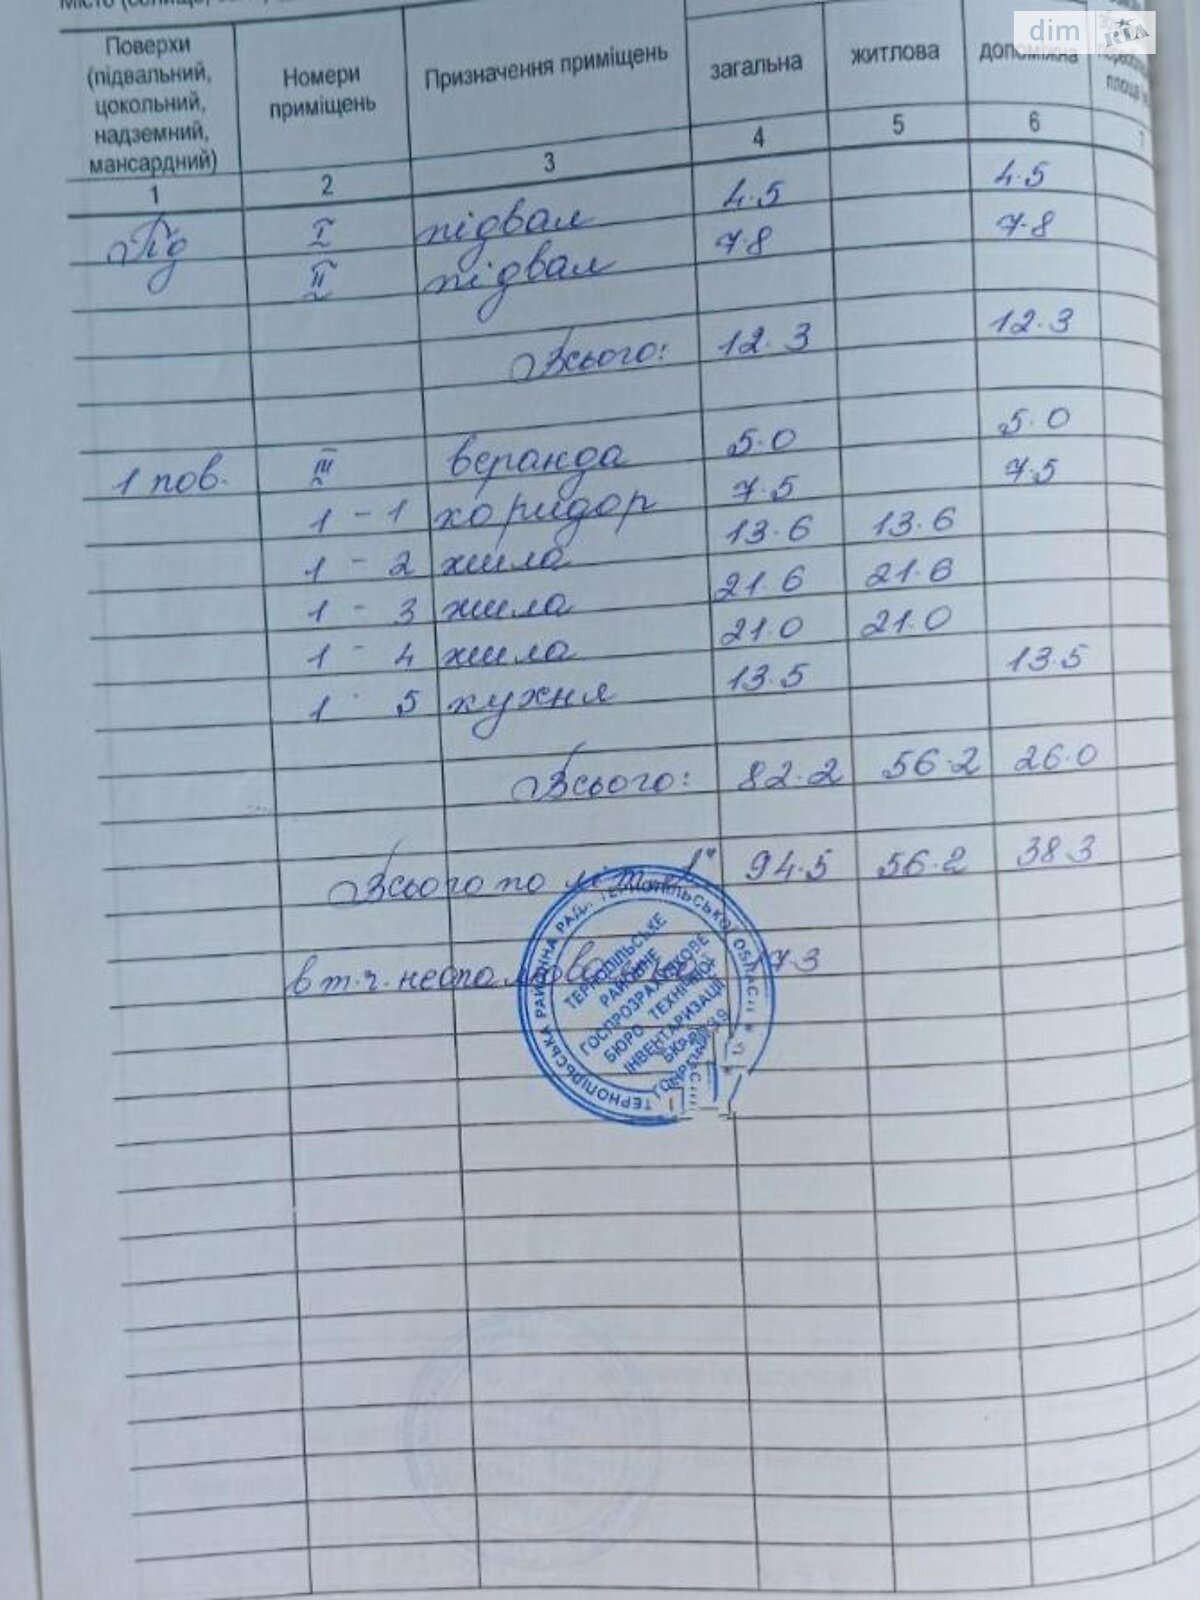 dim RIA
Поверхи (підвальний, цокольний, надземний, мансардний)
Номери приміщень
Призначення приміщень
загальна
житлова
допоміжна
площа
1 2 3 4 5 6 7
Під I підвал 4.5 4.5
II підвал 7.8 7.8
Всього: 12.3 12.3
1 пов. III веранда 5.0 5.0
1 - 1 коридор 7.5 7.5
1 - 2 жила 13.6 13.6
1 - 3 жила 21.6 21.6
1 - 4 жила 21.0 21.0
1 - 5 кухня 13.5 13.5
Всього: 82.2 56.2 26.0
Всього по 94.5 56.2 38.3
в т.ч. 17.3
ТЕРНОПІЛЬСЬКА РАЙОННА РАДА ТЕРНОПІЛЬСЬКОЇ ОБЛАСТІ
ТЕРНОПІЛЬСЬКЕ
РАЙОННЕ
ГОСПРОЗРАХУНКОВЕ
БЮРО ТЕХНІЧНОЇ
ІНВЕНТАРИЗАЦІЇ